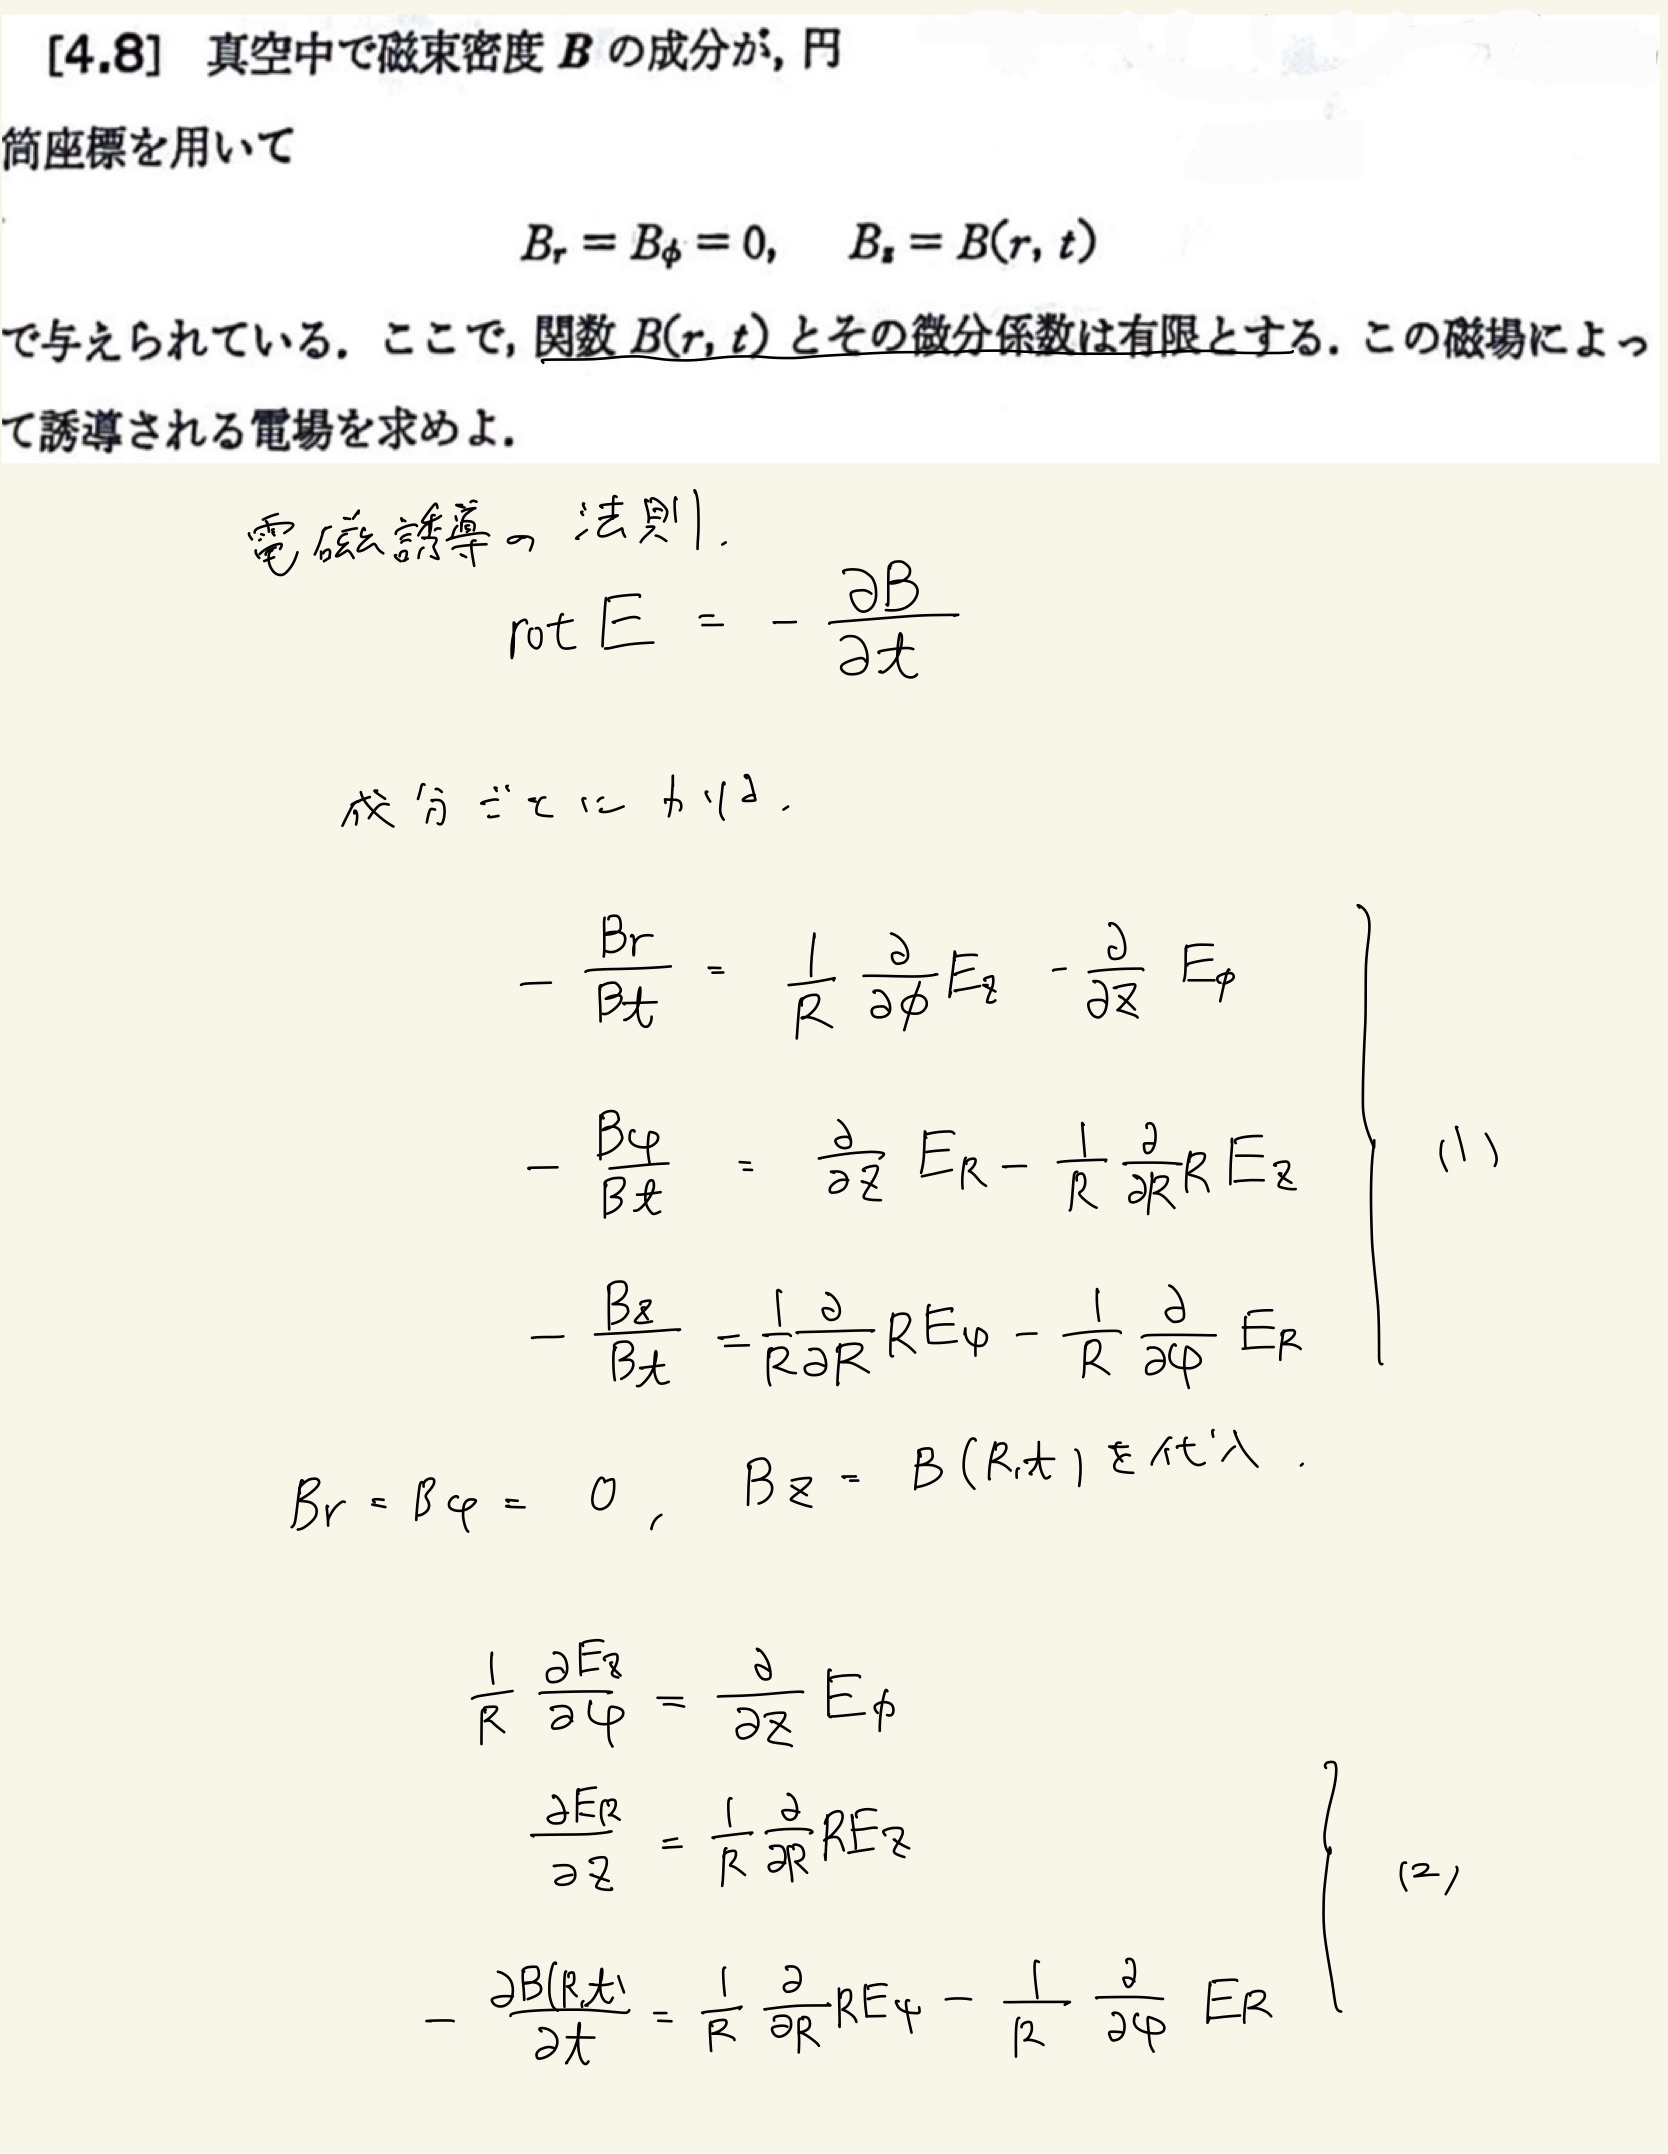 [4.8] 真空中で磁束密度 B の成分が, 円
筒座標を用いて
B_r = B_φ = 0, B_z = B(r, t)
で与えられている. ここで, 関数 B(r, t) とその微分係数は有限とする. この磁場によっ
て誘導される電場を求めよ.
電磁誘導の法則.
rot E = - ∂B/∂t
成分ごとにかけば.
- Br/Bt = 1/R ∂/∂φ E_z - ∂/∂z E_φ
- Bφ/Bt = ∂/∂z E_R - 1/R ∂/∂R R E_z (1)
- Bz/Bt = 1/R ∂/∂R R E_φ - 1/R ∂/∂φ E_R
Br = Bφ = 0, Bz = B(R,t) を代入.
1/R ∂E_z/∂φ = ∂/∂z E_φ
∂E_R/∂z = 1/R ∂/∂R R E_z (2)
- ∂B(R,t)/∂t = 1/R ∂/∂R R E_φ - 1/R ∂/∂φ E_R